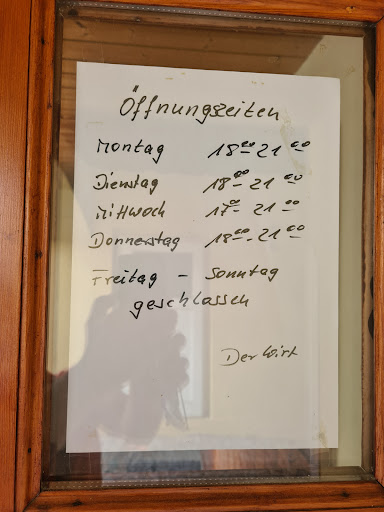 Öffnungszeiten
Montag 18⁰⁰ 21⁰⁰
Dienstag 18⁰⁰-21⁰⁰
Mittwoch 17⁰⁰ 21⁰⁰
Donnerstag 18⁰⁰-21⁰⁰
Freitag - Sonntag
geschlassen
Der Wirt